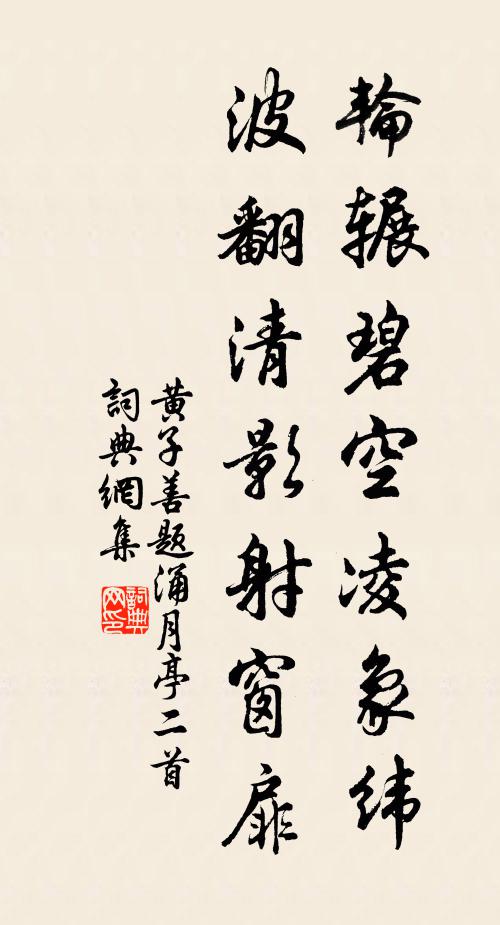 輪辗碧空凌象緯
波翻清影射窗扉
黄子善题涌月亭二首
詞典網集
詞典网印